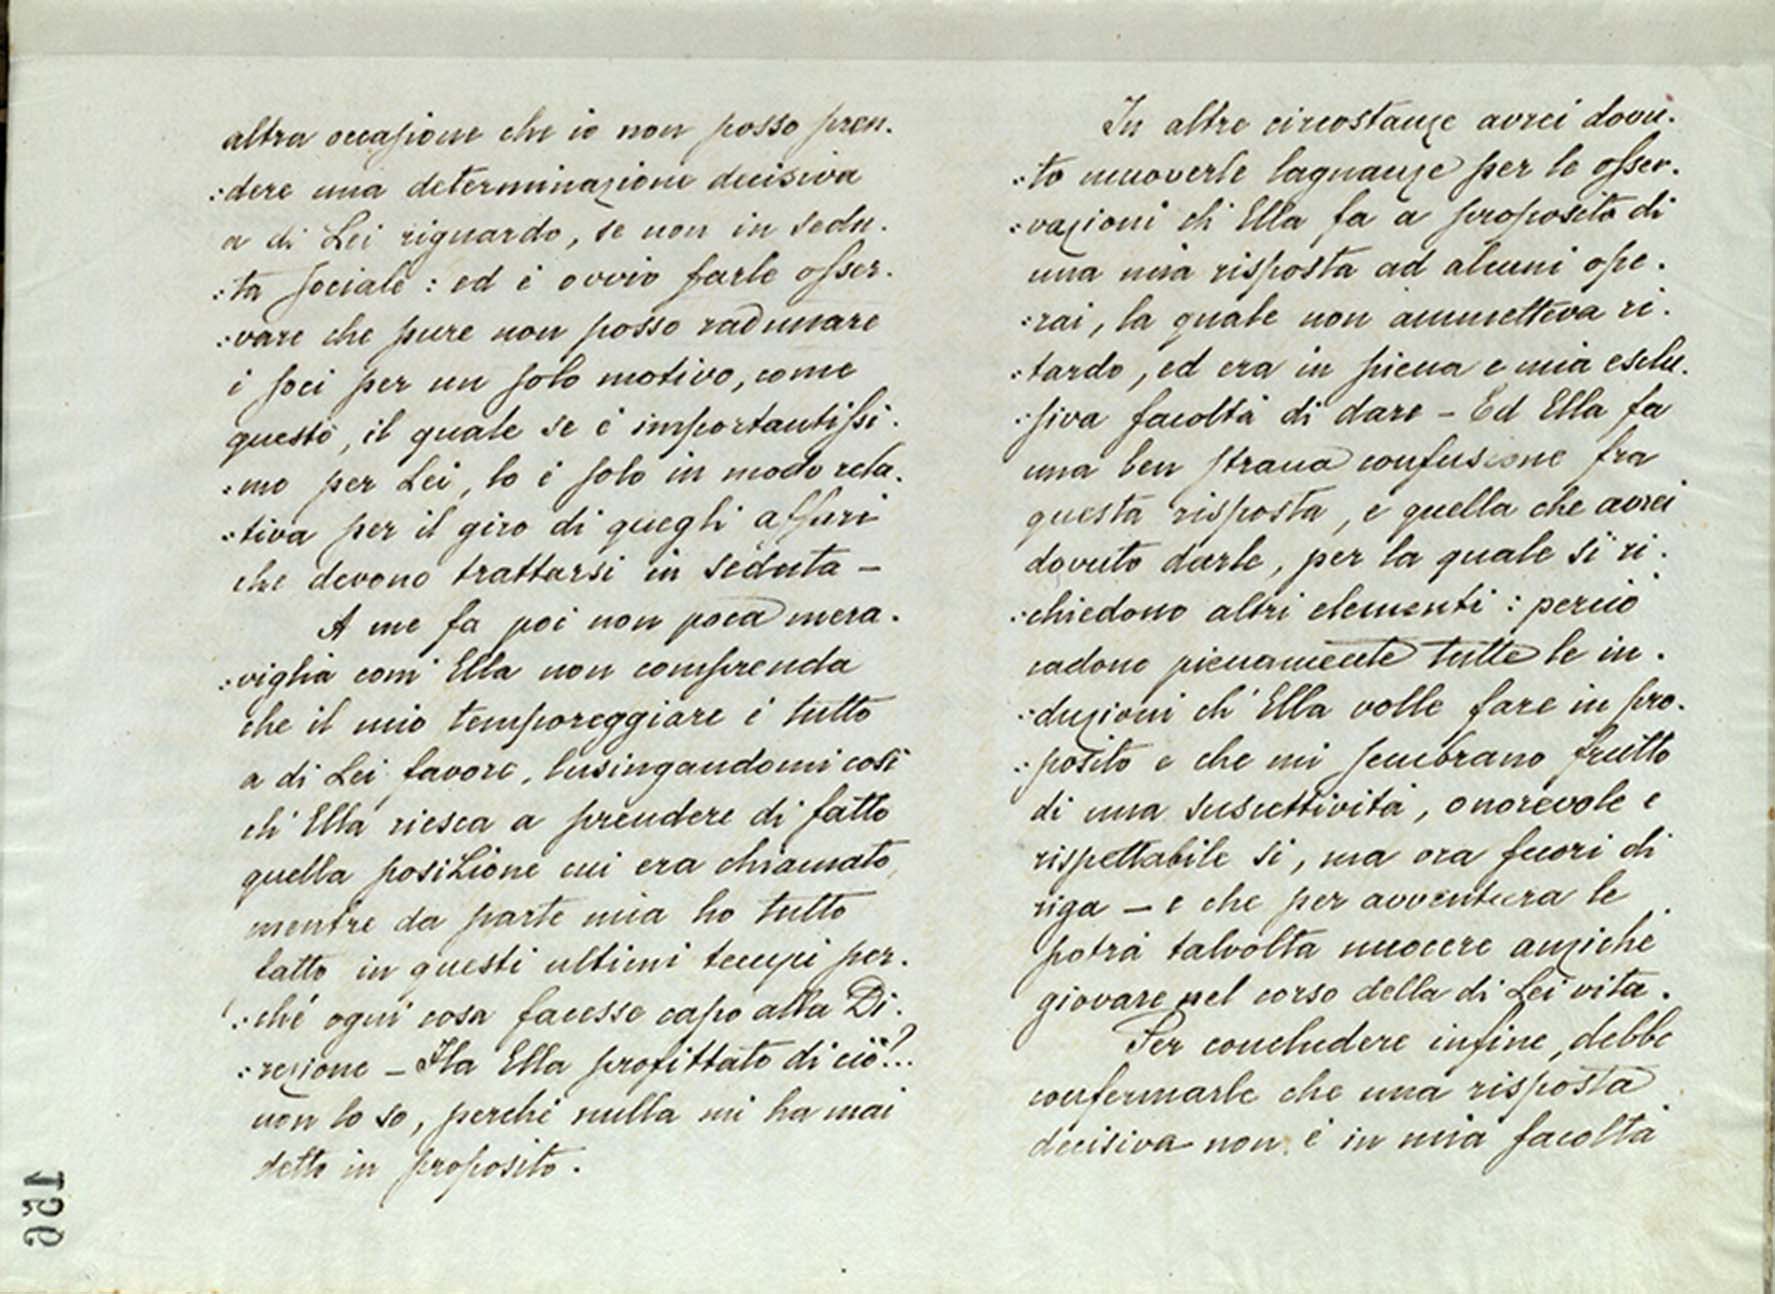 altra occasione che io non posso pren.
:dere una determinazione decisiva
a di Lei riguardo, se non in sedu.
:ta sociale : ed è ovvio farle osser.
:vare che pure non posso radunare
i soci per un solo motivo, come
questo, il quale se è importantissi.
:mo per Lei, lo è solo in modo rela.
:tiva per il giro di quegli affari
che devono trattarsi in seduta –
A me fa poi non poca mera.
:viglia com' Ella non comprenda
che il mio temporeggiare è tutto
a di Lei favore, lusingandomi così
ch' Ella riesca a prendere di fatto
quella posizione cui era chiamato,
mentre da parte mia ho tutto
fatto in questi ultimi tempi per.
:ché ogni cosa facesse capo alla Di.
:rezione – Ha Ella profittato di ciò?..
non lo so, perchè nulla mi ha mai
detto in proposito.
156
In altre circostanze avrei dovu.
:to muoverle lagnanze per le osser.
:vazioni ch' Ella fa a proposito di
una mia risposta ad alcuni ope.
:rai, la quale non ammetteva ri.
:tardo, ed era in piena e mia esclu.
:siva facoltà di dare – Ed Ella fa
una ben strana confusione fra
questa risposta, e quella che avrei
dovuto darle, per la quale si ri.
:chiedono altri elementi : perciò
cadono pienamente tutte le in.
:duzioni ch' Ella volle fare in pro.
:posito e che mi sembrano frutto
di una suscettività, onorevole e
rispettabile sì, ma ora fuori di
riga – e che per avventura le
potrà talvolta nuocere anziché
giovare nel corso della di Lei vita.
Per concludere infine, debbo
confermarle che una risposta
decisiva non è in mia facoltà